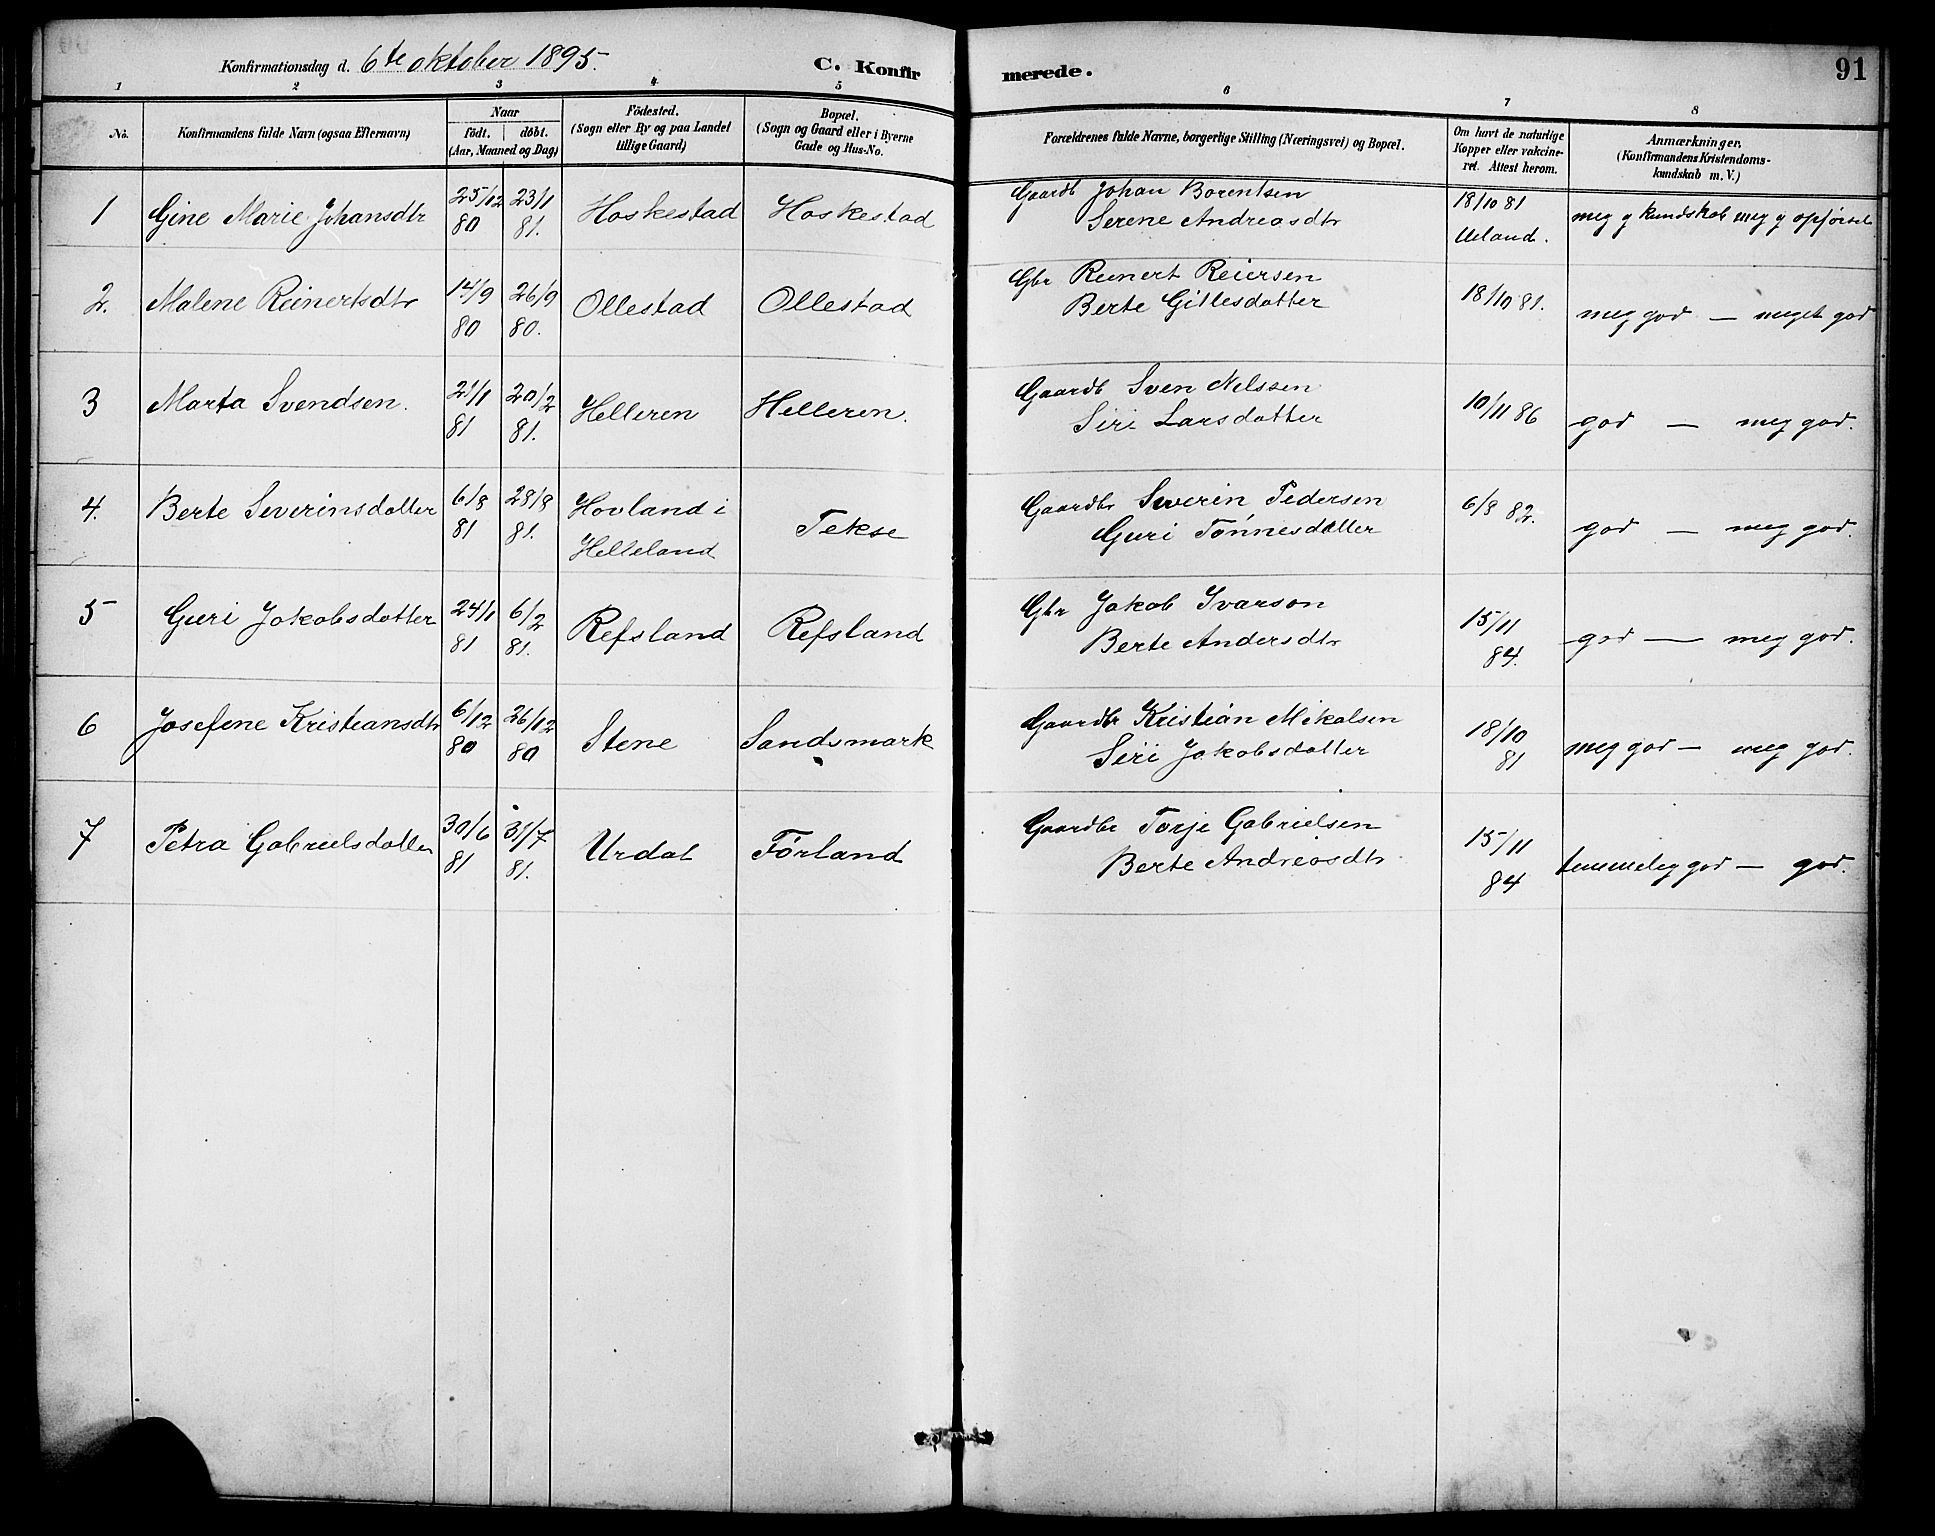 Konfirmationsdag d. 6te oktober 1895. C. Konfirmerede. 91
1 2 3 4 5 6 7 8
No.
Konfirmandens fulde Navn (ogsaa Efternavn)
Naar
födt. döbt.
(Aar, Maaned og Dag)
Födested.
(Sogn eller By og paa Landet
tillige Gaard)
Bopæl.
(Sogn og Gaard eller i Byerne
Gade og Hus-No.
Forældrenes fulde Navne, borgerlige Stilling (Næringsvei) og Bopæl.
Om havt de naturlige
Kopper eller vakcine-
ret. Attest herom.
Anmærkninger,
(Konfirmandens Kristendoms-
kundskab m. V.)
1 Gine Marie Johansdtr 25/12 80 23/1 81. Hoskestad Hoskestad Gaardb Johan Borentsen
Serene Andreasdtr 18/10 81 Ueland. meg g kundskab meg g opførsel
2. Malene Reinertsdtr 14/9 80 26/9 80. Ollestad Ollestad Gbr Reinert Reiersen
Berte Gitlesdatter 18/10 81. meg god — meget god
3 Marta Svendsen. 21/1 81 20/2 81. Helleren Helleren. Gaardb Sven Nelssen
Siri Larsdatter 10/11 86 god — meg god.
4. Berte Severinsdatter 6/8 81 28/8 81. Hovland i
Helleland Tekse Gaardbr Severin Pedersen
Guri Tønnesdatter 6/8 82. god — meg god.
5 Guri Jakobsdatter 24/1 81 6/2 81. Refsland Refsland Gbr Jakob Ivarson
Berte Andersdtr 15/11 84. god — meg god.
6 Josefene Kristiansdtr 6/12 80 26/12 80 Stene Sandsmark Gaardbr Kristian Mikalsen
Siri Jakobsdatter 18/10 81 meg god — meg god.
7 Petra Gabrielsdatter 30/6 81 31/7 81. Urdal Førland Gaardbr Torje Gabrielsen
Berte Andreasdtr 15/11 84 temmeleg god — god.